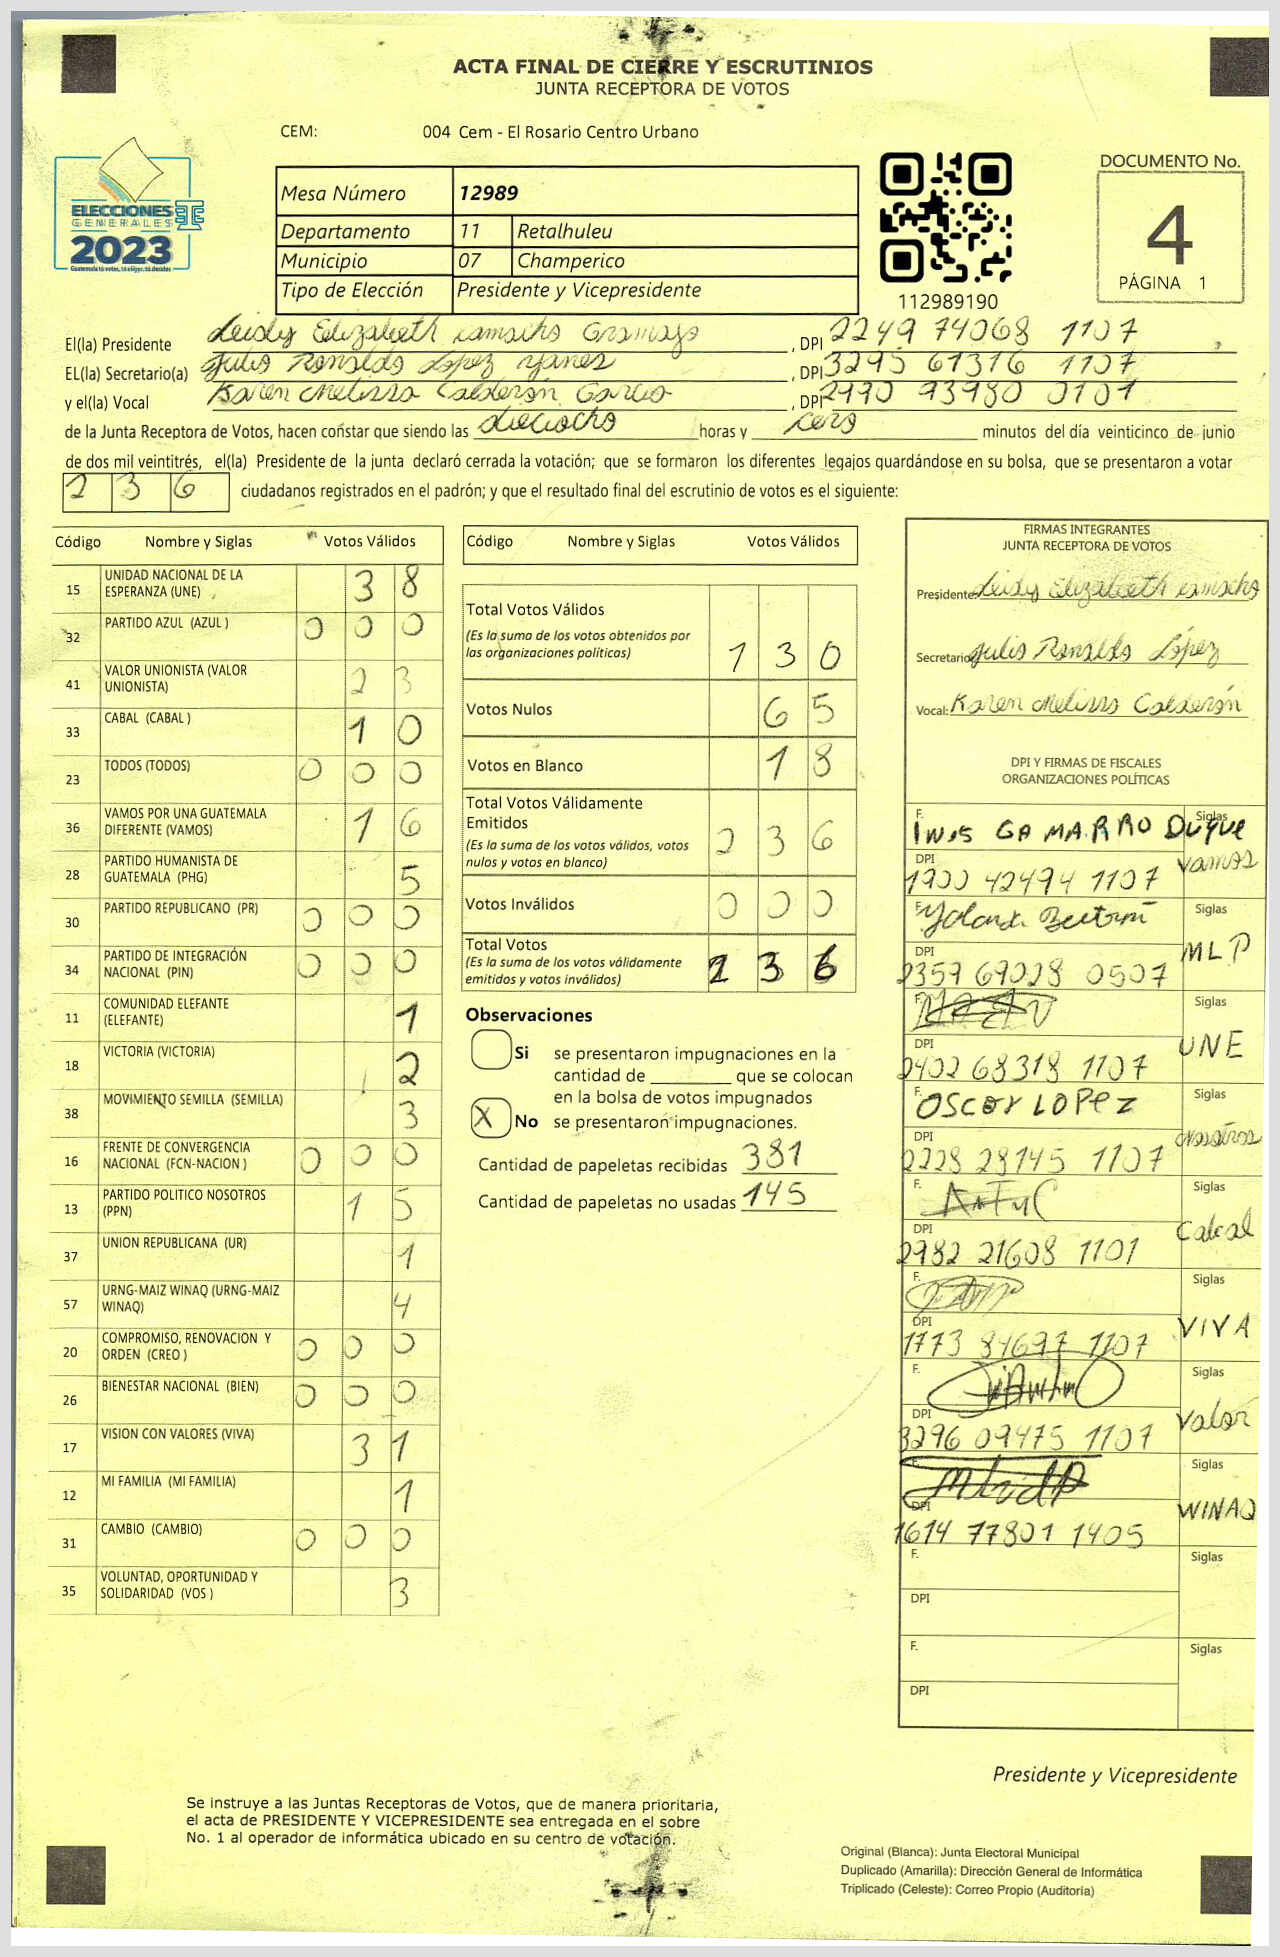 ACTA FINAL DE CIERRE Y ESCRUTINIOS
JUNTA RECEPTORA DE VOTOS
CEM: 004 Cem - El Rosario Centro Urbano
ELECCIONES
GENERALES
2023
Mesa Número 12989
Departamento 11 Retalhuleu
Municipio 07 Champerico
Tipo de Elección Presidente y Vicepresidente
112989190
DOCUMENTO No.
4
PÁGINA 1
El(la) Presidente Leisly Elizabeth Camacho Gramajo, DPI 2249 74068 1107
EL(la) Secretario(a) Julio Ronaldo Lopez Yanes, DPI 3295 61316 1107
y el(la) Vocal Karen Melissa Calderón Garcia, DPI 2990 93980 0101
de la Junta Receptora de Votos, hacen constar que siendo las dieciocho horas y cero minutos del día veinticinco de junio
de dos mil veintitrés, el(la) Presidente de la junta declaró cerrada la votación; que se formaron los diferentes legajos guardándose en su bolsa, que se presentaron a votar
236 ciudadanos registrados en el padrón; y que el resultado final del escrutinio de votos es el siguiente:
Código Nombre y Siglas Votos Válidos
15 UNIDAD NACIONAL DE LA ESPERANZA (UNE) 38
32 PARTIDO AZUL (AZUL ) 000
41 VALOR UNIONISTA (VALOR UNIONISTA) 23
33 CABAL (CABAL ) 10
23 TODOS (TODOS) 000
36 VAMOS POR UNA GUATEMALA DIFERENTE (VAMOS) 16
28 PARTIDO HUMANISTA DE GUATEMALA (PHG) 5
30 PARTIDO REPUBLICANO (PR) 000
34 PARTIDO DE INTEGRACIÓN NACIONAL (PIN) 000
11 COMUNIDAD ELEFANTE (ELEFANTE) 1
18 VICTORIA (VICTORIA) 2
38 MOVIMIENTO SEMILLA (SEMILLA) 3
16 FRENTE DE CONVERGENCIA NACIONAL (FCN-NACION ) 000
13 PARTIDO POLITICO NOSOTROS (PPN) 15
37 UNION REPUBLICANA (UR) 1
57 URNG-MAIZ WINAQ (URNG-MAIZ WINAQ) 4
20 COMPROMISO, RENOVACION Y ORDEN (CREO ) 000
26 BIENESTAR NACIONAL (BIEN) 000
17 VISION CON VALORES (VIVA) 31
12 MI FAMILIA (MI FAMILIA) 1
31 CAMBIO (CAMBIO) 000
35 VOLUNTAD, OPORTUNIDAD Y SOLIDARIDAD (VOS ) 3
Código Nombre y Siglas Votos Válidos
Total Votos Válidos 130
(Es la suma de los votos obtenidos por las organizaciones políticas)
Votos Nulos 65
Votos en Blanco 18
Total Votos Válidamente Emitidos 236
(Es la suma de los votos válidos, votos nulos y votos en blanco)
Votos Inválidos 000
Total Votos 236
(Es la suma de los votos válidamente emitidos y votos inválidos)
Observaciones
Si se presentaron impugnaciones en la
cantidad de ________ que se colocan
en la bolsa de votos impugnados
X No se presentaron impugnaciones.
Cantidad de papeletas recibidas 381
Cantidad de papeletas no usadas 145
FIRMAS INTEGRANTES
JUNTA RECEPTORA DE VOTOS
Presidente: Leisly Elizabeth Camacho
Secretario: Julio Ronaldo López
Vocal: Karen Melissa Calderón
DPI Y FIRMAS DE FISCALES
ORGANIZACIONES POLÍTICAS
F. INIS GAMARRO Duque Siglas Vamos
DPI 1900 42494 1107
F. Siglas MLP
DPI 2359 69028 0507
F. Siglas UNE
DPI 2402 68318 1107
F. OSCAR LOPEZ Siglas Nosotros
DPI 2228 28145 1107
F. Siglas Cabal
DPI 2982 21608 1101
F. Siglas VIVA
DPI 1773 84697 1107
F. Siglas Valor
DPI 3296 09475 1107
F. Siglas WINAQ
DPI 1614 77801 1405
F. Siglas
DPI
F. Siglas
DPI
Presidente y Vicepresidente
Se instruye a las Juntas Receptoras de Votos, que de manera prioritaria,
el acta de PRESIDENTE Y VICEPRESIDENTE sea entregada en el sobre
No. 1 al operador de informática ubicado en su centro de votación.
Original (Blanca): Junta Electoral Municipal
Duplicado (Amarilla): Dirección General de Informática
Triplicado (Celeste): Correo Propio (Auditoría)